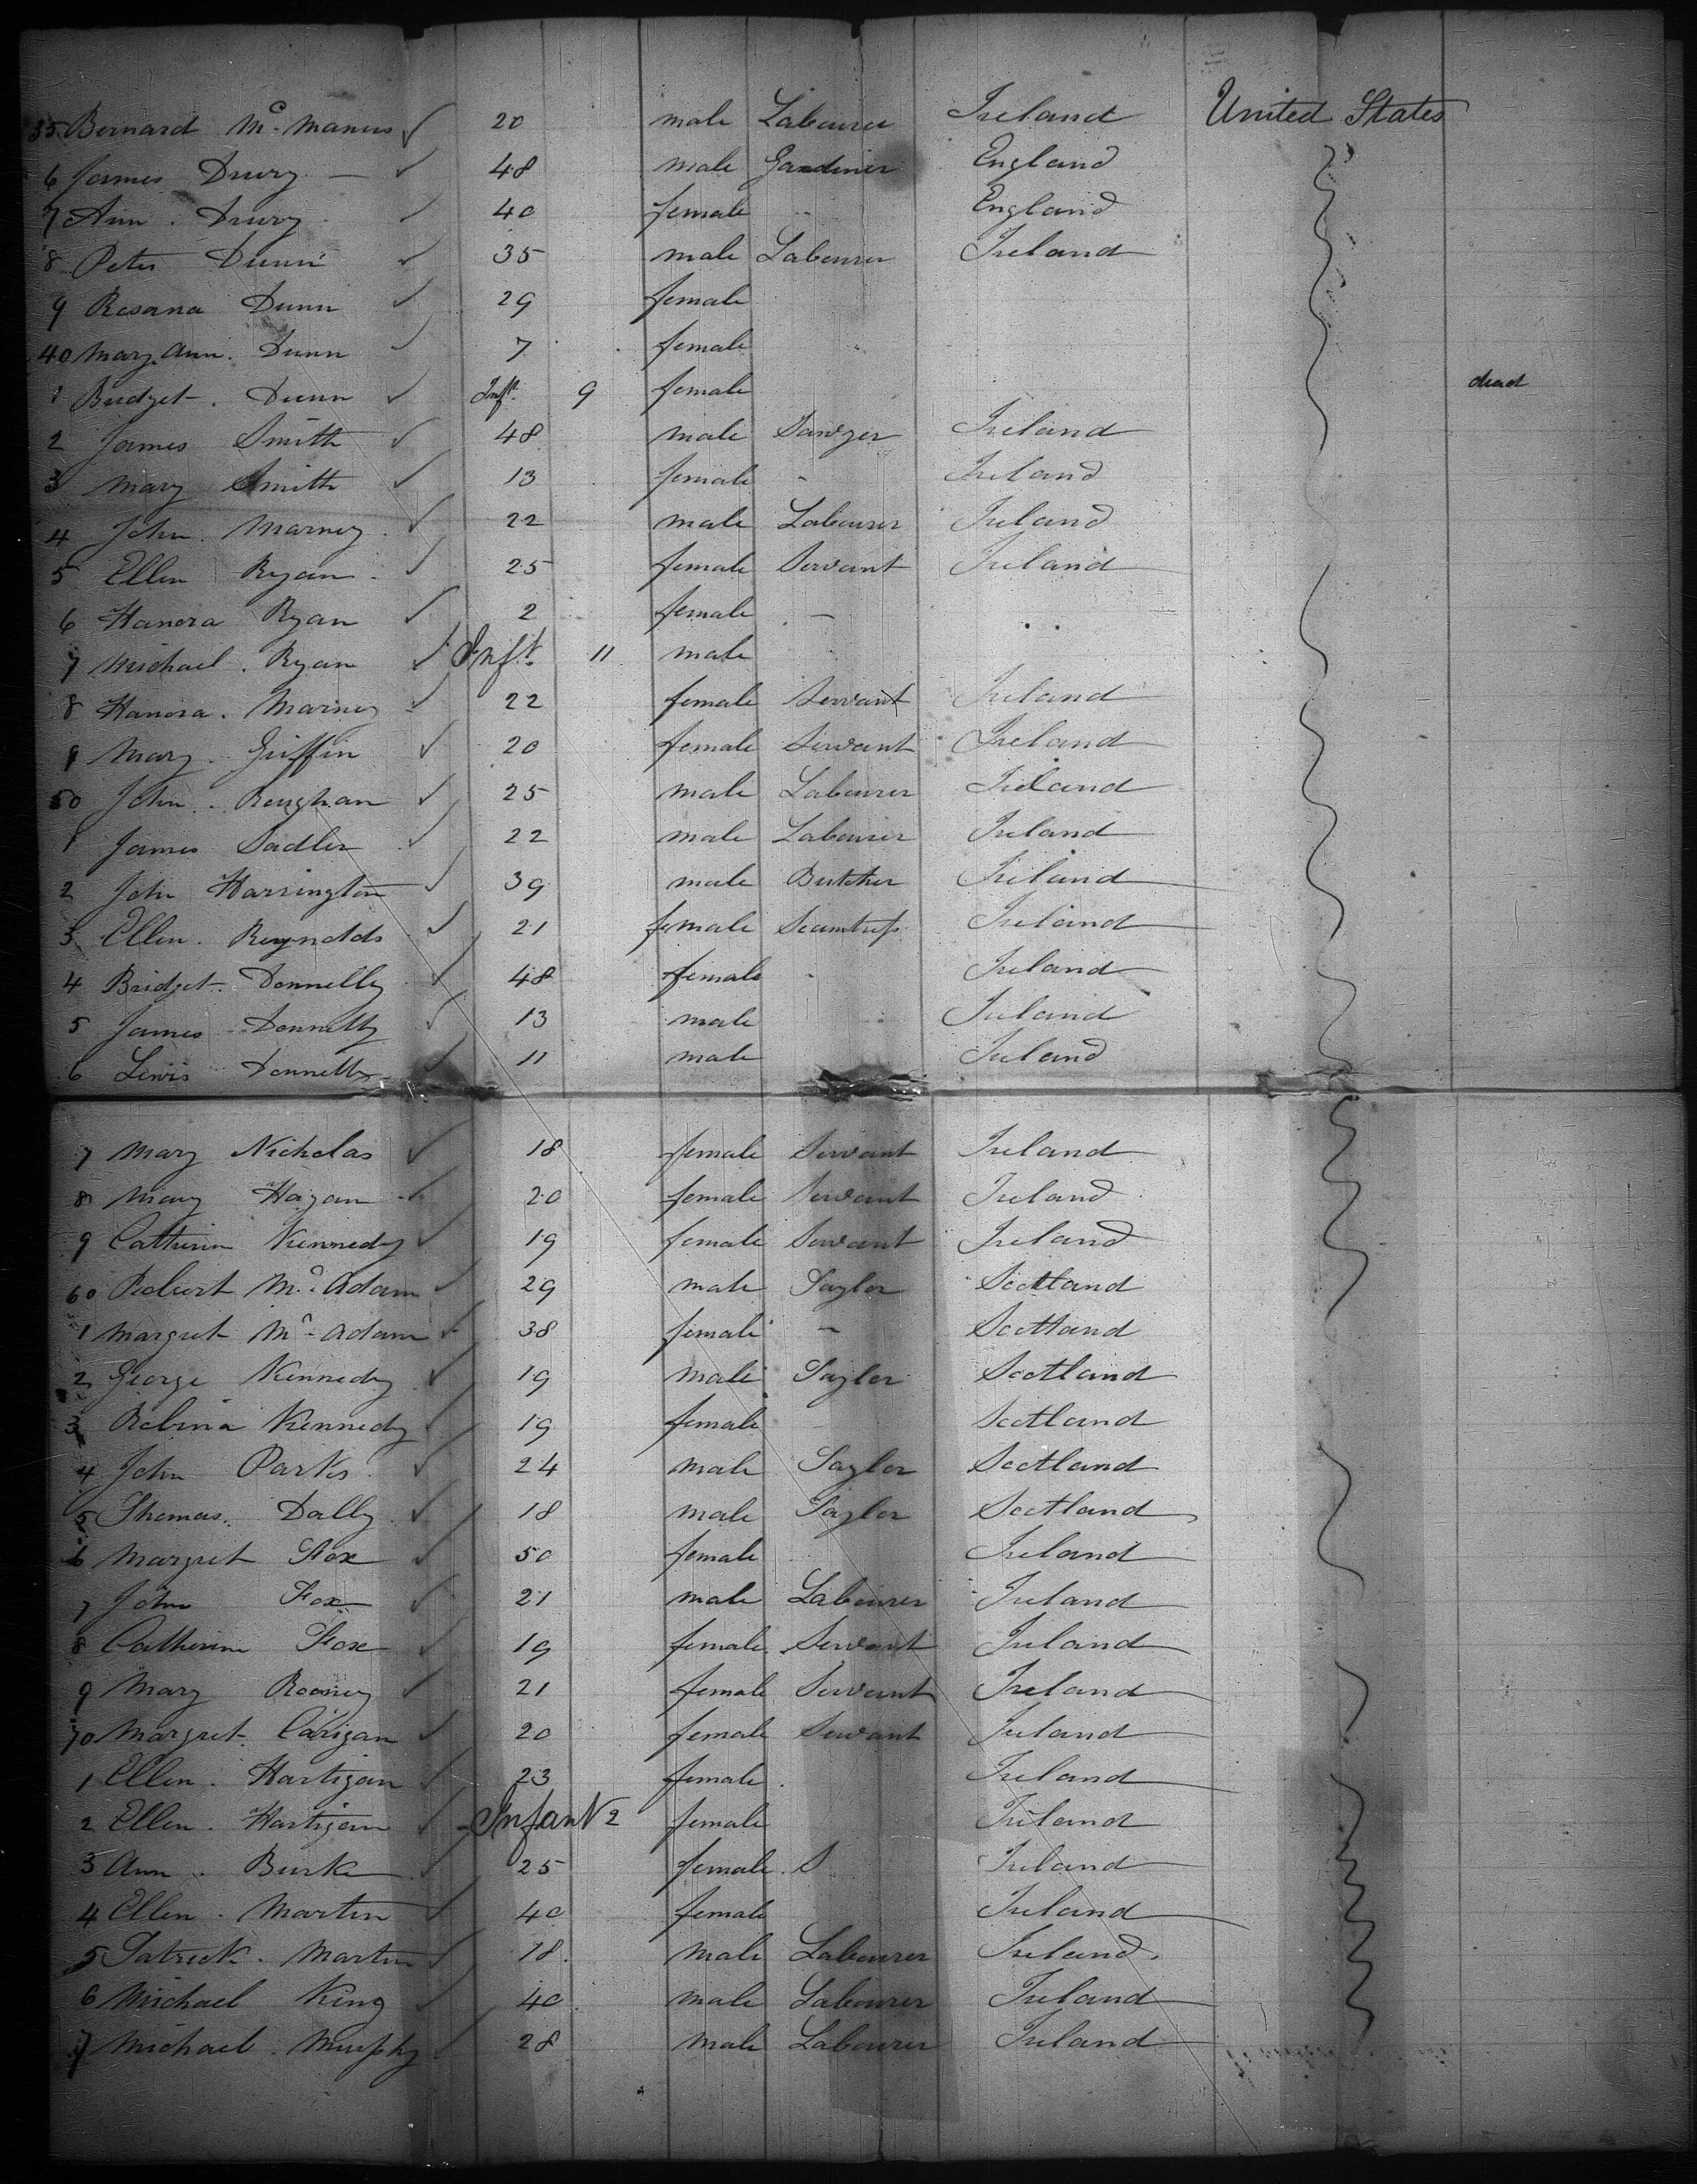 35 Bernard Mc Manus 20 male Labourer Ireland United States
6 James Drury 48 male Gardiner England
7 Ann Drury 40 female England
8 Peter Dunn 35 male Labourer Ireland
9 Rosana Dunn 29 female
40 Mary Ann Dunn 7 female
1 Bridget Dunn Inft. 9 female dead
2 James Smith 48 male Sawyer Ireland
3 Mary Smith 13 female Ireland
4 John Marney 22 male Labourer Ireland
5 Ellen Ryan 25 female Servant Ireland
6 Hanora Ryan 2 female
7 Michael Ryan Inft. 11 male
8 Hanora Marney 22 female Servant Ireland
9 Mary Griffin 20 female Servant Ireland
50 John Roughan 25 male Labourer Ireland
1 James Sadler 22 male Labourer Ireland
2 John Harrington 39 male Butcher Ireland
3 Ellen Reynolds 21 female Seamtress Ireland
4 Bridget Donnelly 48 female Ireland
5 James Donnelly 13 male Ireland
6 Lewis Donnelly 11 male Ireland
7 Mary Nicholas 18 female Servant Ireland
8 Mary Hagan 20 female Servant Ireland
9 Catherin Kennedy 19 female Servant Ireland
60 Robert Mc Adam 29 male Taylor Scotland
1 Margret Mc Adam 38 female Scotland
2 George Kennedy 19 male Taylor Scotland
3 Robina Kennedy 19 female Scotland
4 John Parks 24 male Taylor Scotland
5 Thomas Dally 18 male Taylor Scotland
6 Margret Fox 50 female Ireland
7 John Fox 21 male Labourer Ireland
8 Catherine Fox 19 female Servant Ireland
9 Mary Rooney 21 female Servant Ireland
70 Margret Carigan 20 female Servant Ireland
1 Ellen Hartigan 23 female Ireland
2 Ellen Hartigan Infant 2 female Ireland
3 Ann Burke 25 female S Ireland
4 Ellen Martin 40 female Ireland
5 Patrick Martin 18 male Labourer Ireland
6 Michael King 40 male Labourer Ireland
7 Michael Murphy 28 male Labourer Ireland